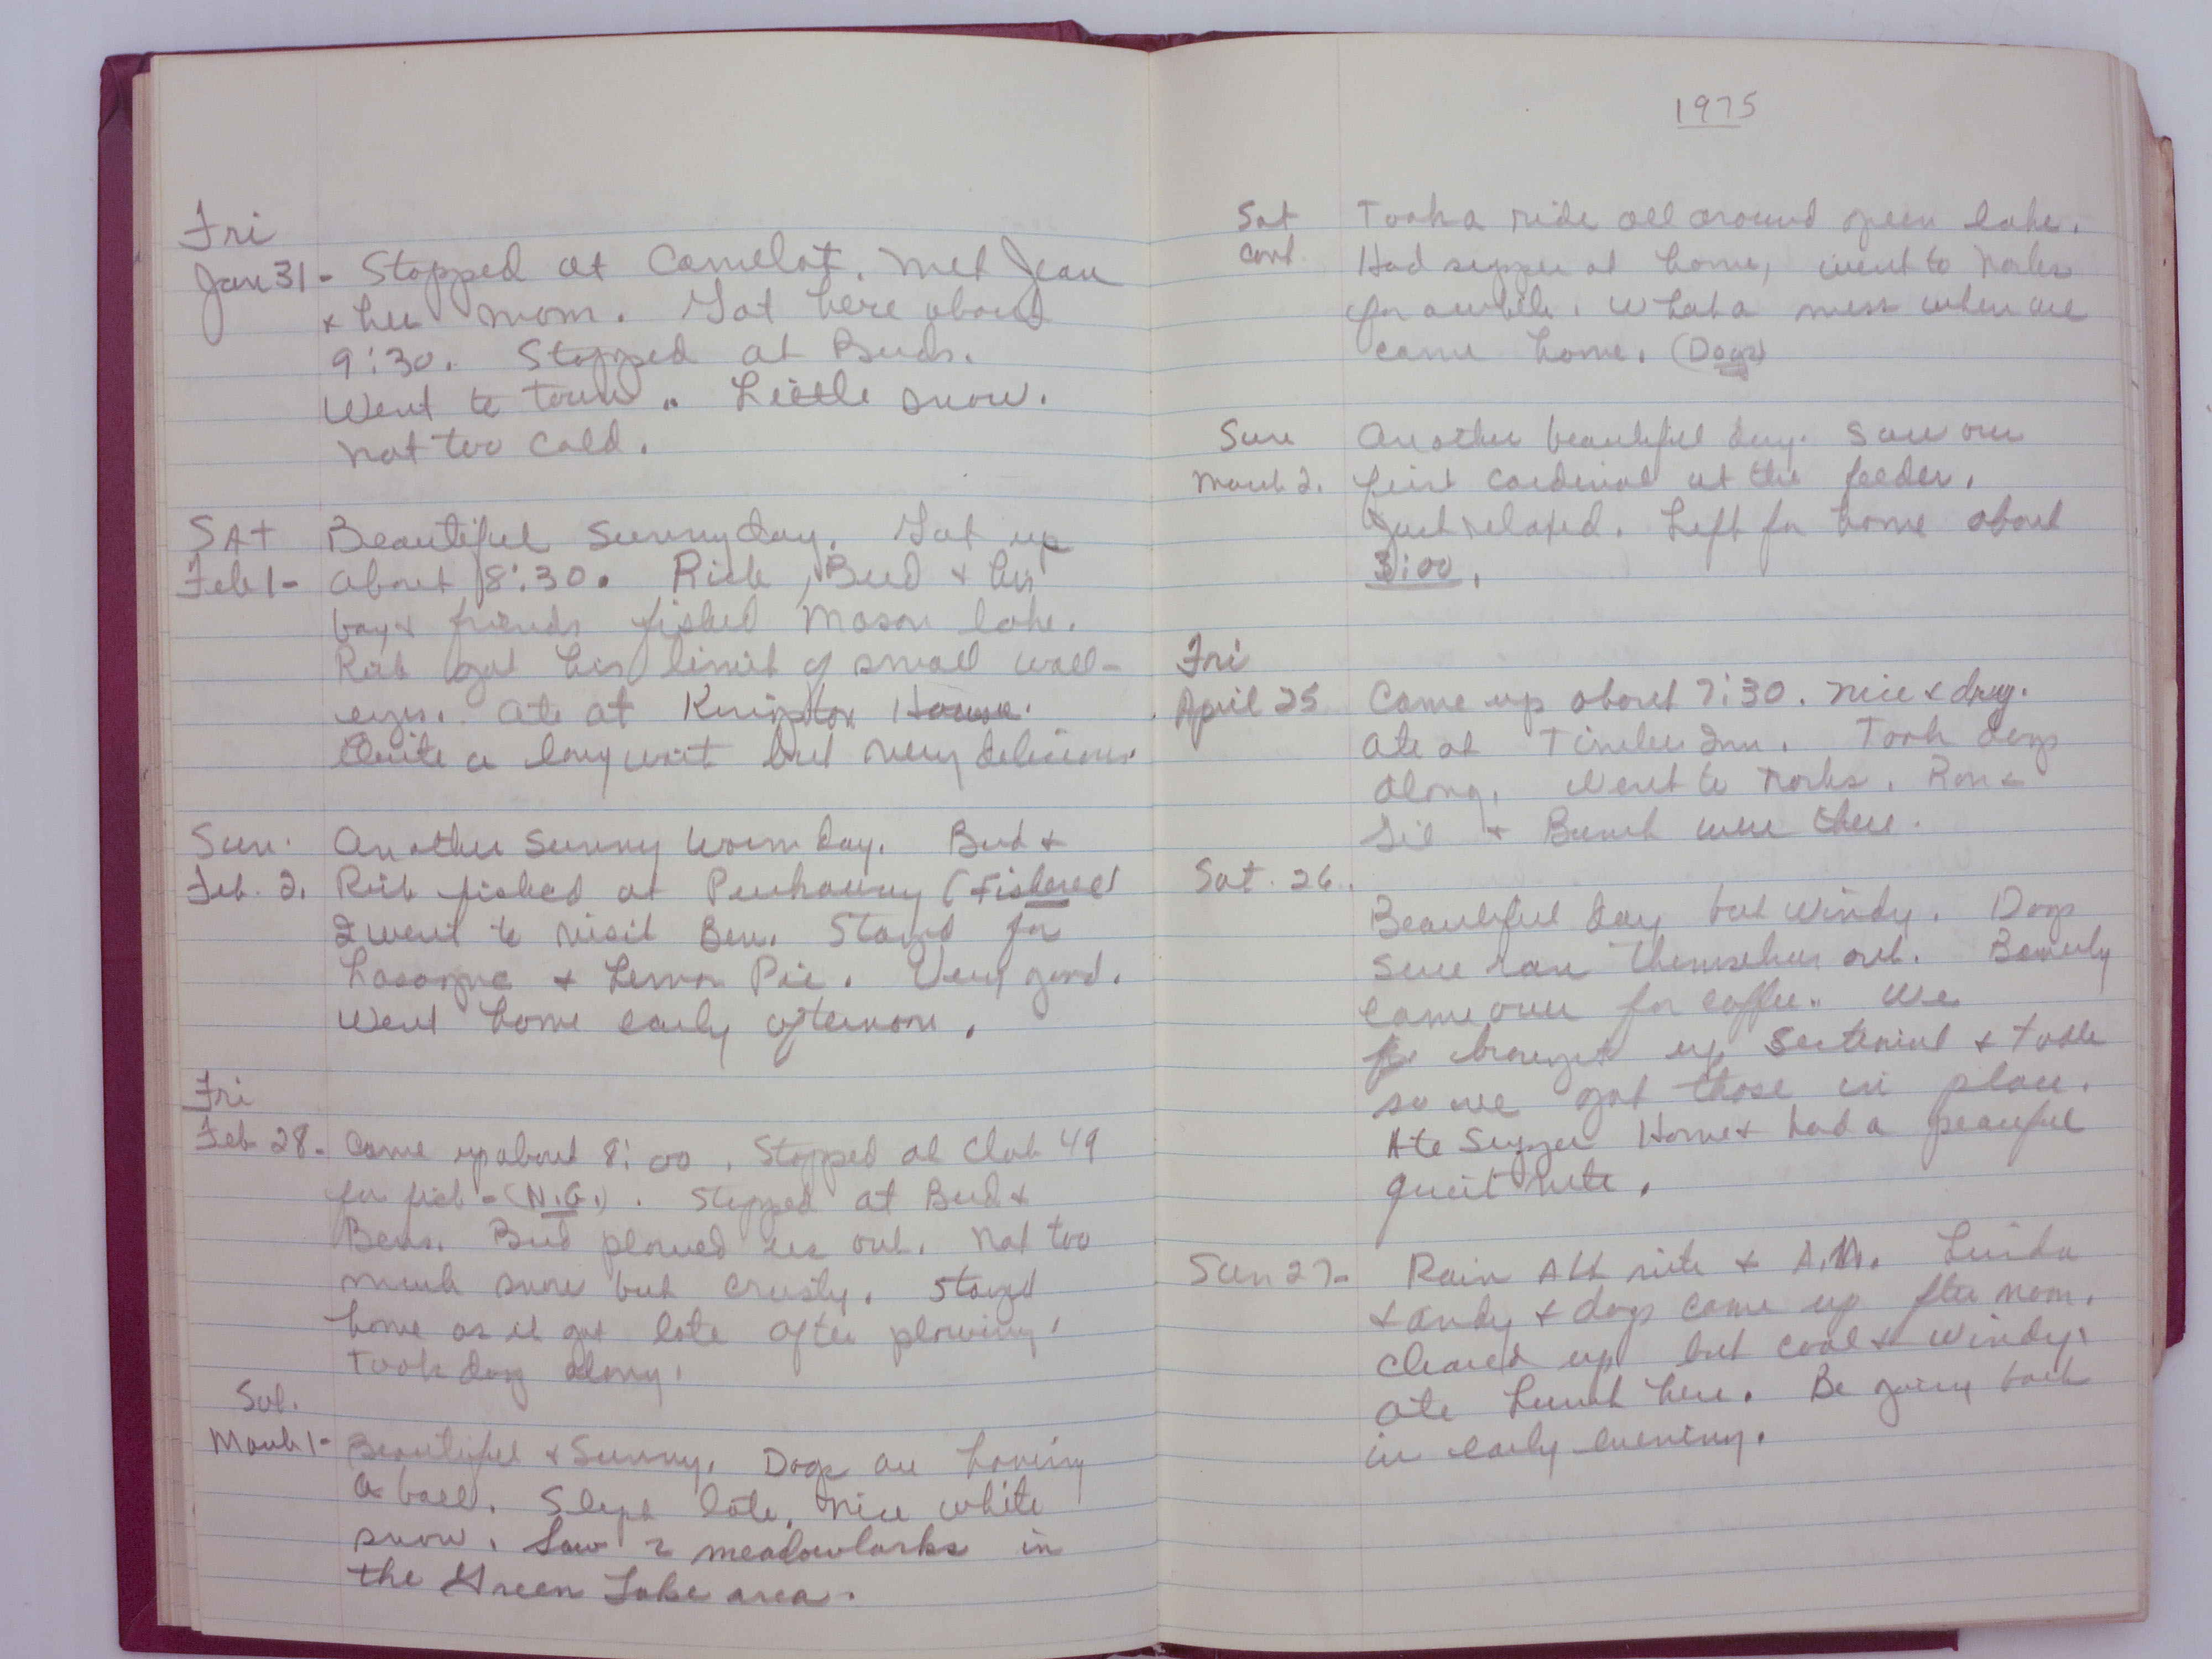 Fri
Jan 31 - Stopped at Camelot. Met Jean
& her mom. Got here about
9:30. Stopped at Buds.
Went to town.. Little snow.
not too cold.
SAT Beautiful sunny day. Got up
Feb 1 - about 8:30. Rich, Bud & his
boy & friends fished Mason lake.
Rich got his limit of small wall-
eyes. Ate at House.
Quite a long wait but very delicious.
Sun. Another sunny warm day. Bud &
Feb. 2. Rich fished at (Fish
I went to visit Bev. Stayed for
Lasagne & Lemon Pie. Very good.
Went home early afternoon.
Fri
Feb 28. Came up about 8:00. Stopped at Club 49
for fish - (N.G.). Stopped at Bud &
Bevs. Bud plowed us out. Not too
much snow but crusty. Stayed
home as it got late after plowing.
Took dog along.
Sat.
March 1 - Beautiful & Sunny. Dogs are having
a ball. Slept late. Nice white
snow. Saw 2 meadowlarks in
the Green Lake area.
1975
Sat Took a ride all around green lake.
cont. Had supper at home, went to Norks
for awhile. What a mess when we
came home. (Dogs)
Sun Another beautiful day. Saw our
March 2. first cardinal at the feeder.
Just relaxed. Left for home about
3:00.
Fri
April 25 Came up about 7:30. Nice & dry.
Ate at Timber Inn. Took dogs
along. Went to Norks. Ron &
& Bunch were there.
Sat. 26.
Beautiful day but windy. Dogs
sure ran themselves out. Beverly
came over for coffee.. We
brought up & table
so we got those in place.
Ate Supper Home & had a peaceful
quiet nite.
Sun 27 - Rain All nite & A.M. Linda
& Andy & dogs came up fter noon.
Cleared up but cool & windy.
Ate Lunch here. Be going back
in early evening.